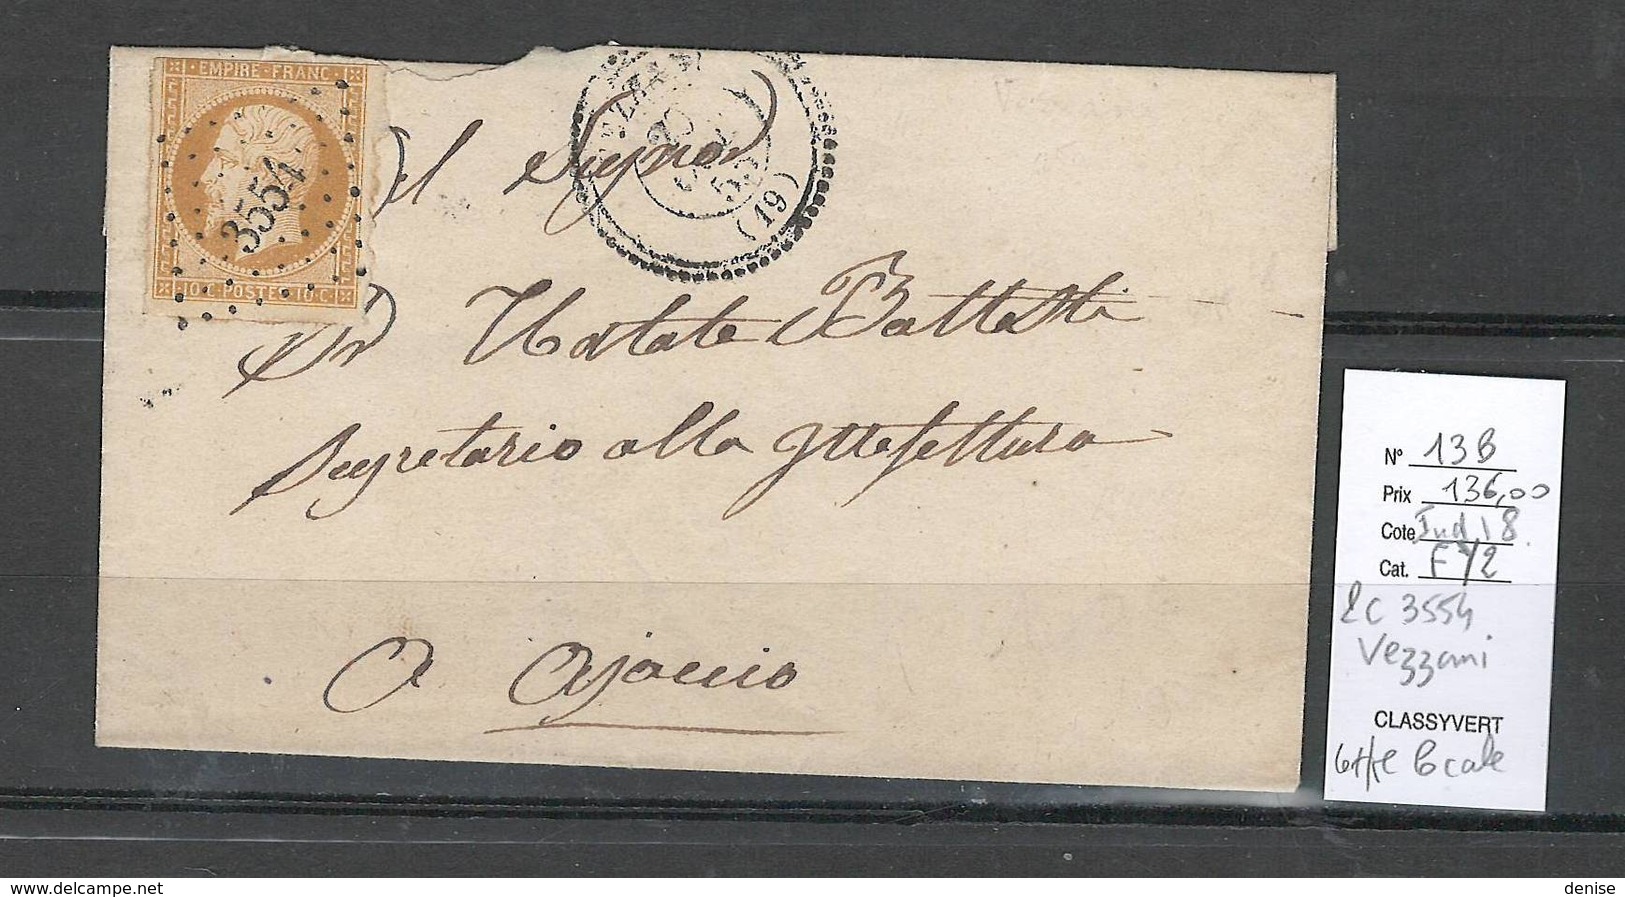 EMPIRE FRANC
3554
10 C. POSTES 10 C.
(19)
Al Signor
Natale Battesti
Segretario alla Prefettura
a Ajaccio
N° 13B
Prix 136,00
Cote Ind 18
Cat. F Y2
PC 3554
Vezzani
CLASSYVERT
lettre locale
www.delcampe.net
denise